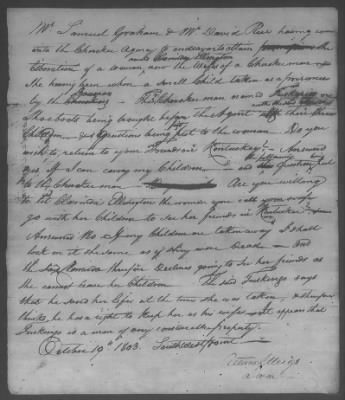 Mr Samuel Graham & Mr David Rees having come
into the Cherokee Agency to endeavor to obtain the
named Clarinda Ellington
liberation of a woman, now the wife of a Cherokee man
She having been when a small Child taken as a prisoner
by the — The Cherokee man named
Shoe boots being brought before the Agent with their three
Children — & Questions being put to the woman — Do you
wish to return to your Friends in Kentucky — Answered
yes, if I can carry my Children — and the following Question put
to the Cherokee man — Are you willing
to let Clarinda Ellington the woman you call your wife
go with her Children to see her friends in Kentucky
Answered No — If my Children are taken away I shall
look on it the same as if they were Dead — and
the said Clarinda therefore declines going to see her friends as
she cannot leave her Children — The said Tuskingo says
that he saved her life at the time she was taken, & therefore
thinks he has a right to keep her as his wife — it appears that
Tuskingo is a man of very considerable property.
October 19th 1803. Southwest Point
Return J. Meigs